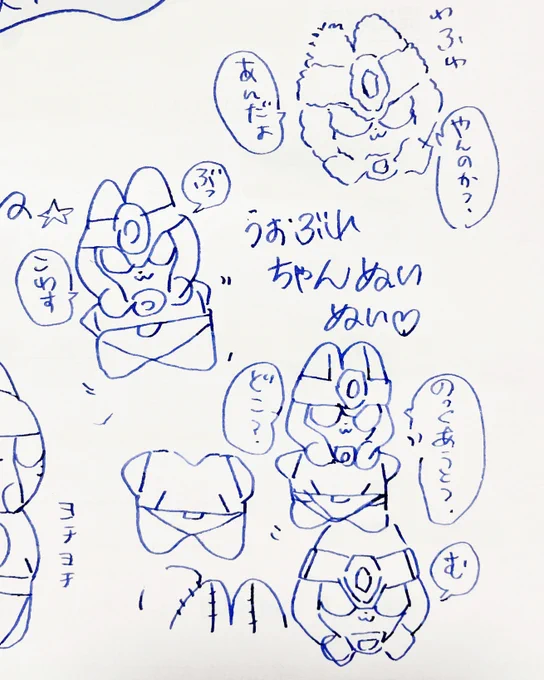 わふわ
やんのか？
あんだよ
ぶっ
こわす
うおぶれ
ちゃんぬい
ぬい♡
どこ？
のっくあうとっ？
む
ヨチヨチ